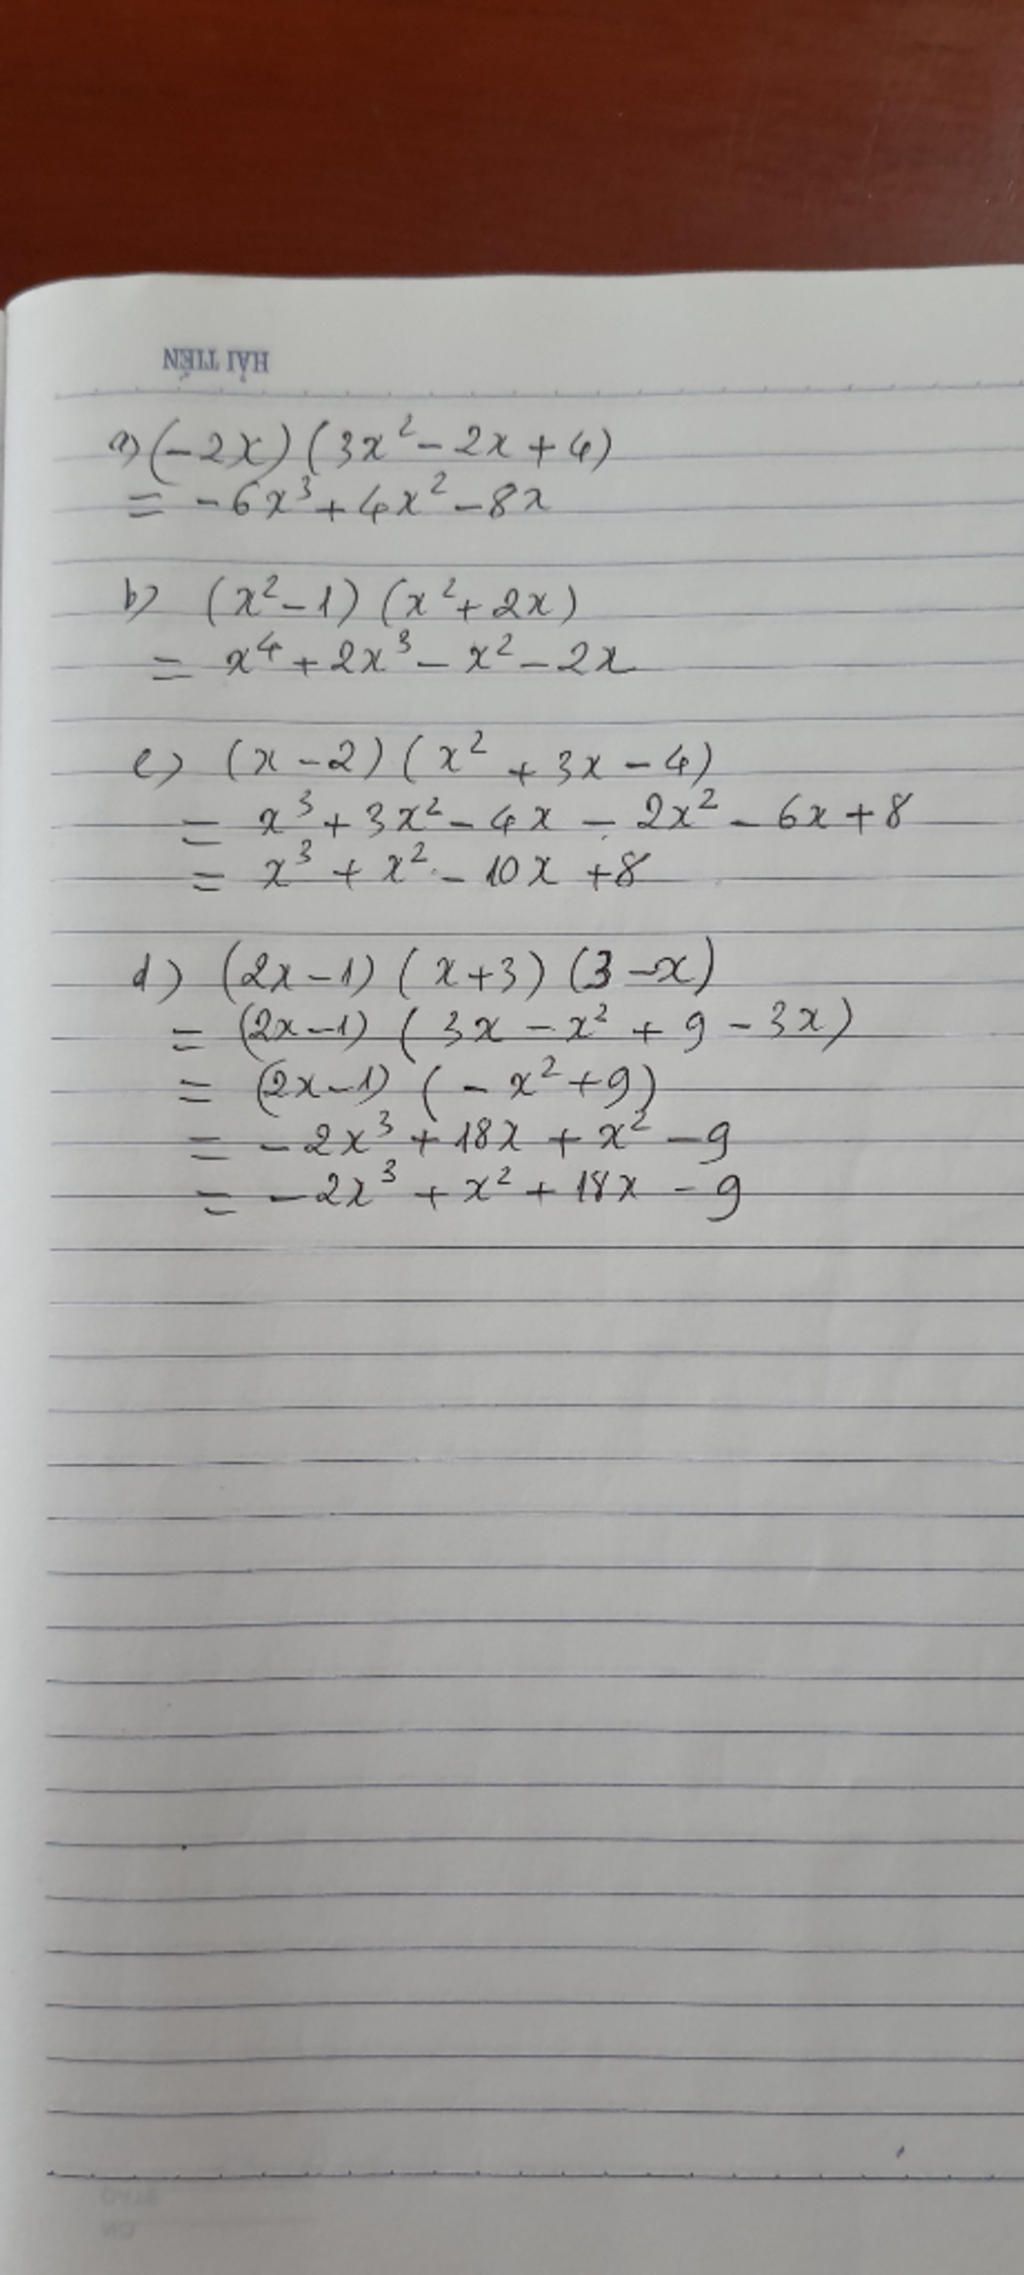 HẢI TIẾN
a) (-2x)(3x² - 2x + 4)
= -6x³ + 4x² - 8x
b) (x² - 1)(x² + 2x)
= x⁴ + 2x³ - x² - 2x
c) (x - 2)(x² + 3x - 4)
= x³ + 3x² - 4x - 2x² - 6x + 8
= x³ + x² - 10x + 8
d) (2x - 1)(x + 3)(3 - x)
= (2x - 1)(3x - x² + 9 - 3x)
= (2x - 1)(-x² + 9)
= -2x³ + 18x + x² - 9
= -2x³ + x² + 18x - 9